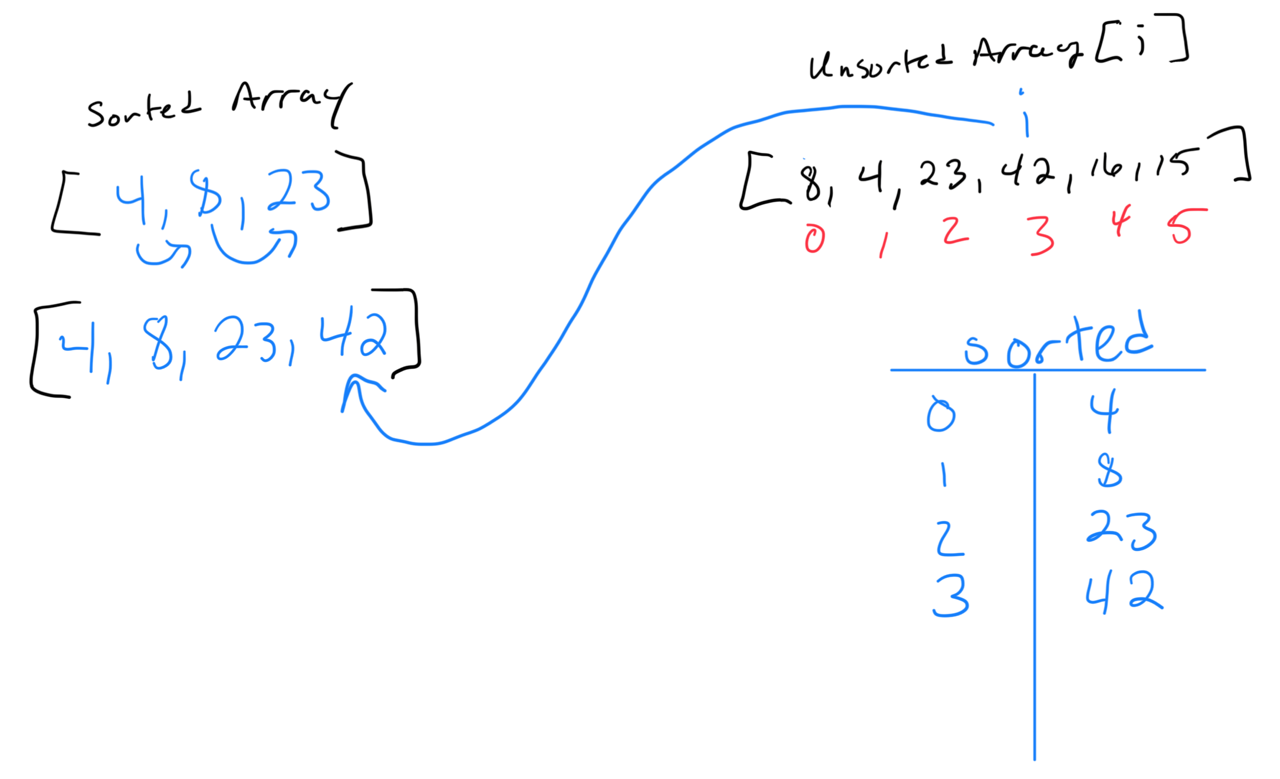 Sorted Array
[4, 8, 23]
[4, 8, 23, 42]
Unsorted Array[i]
i
[8, 4, 23, 42, 16, 15]
0 1 2 3 4 5
sorted
0 4
1 8
2 23
3 42